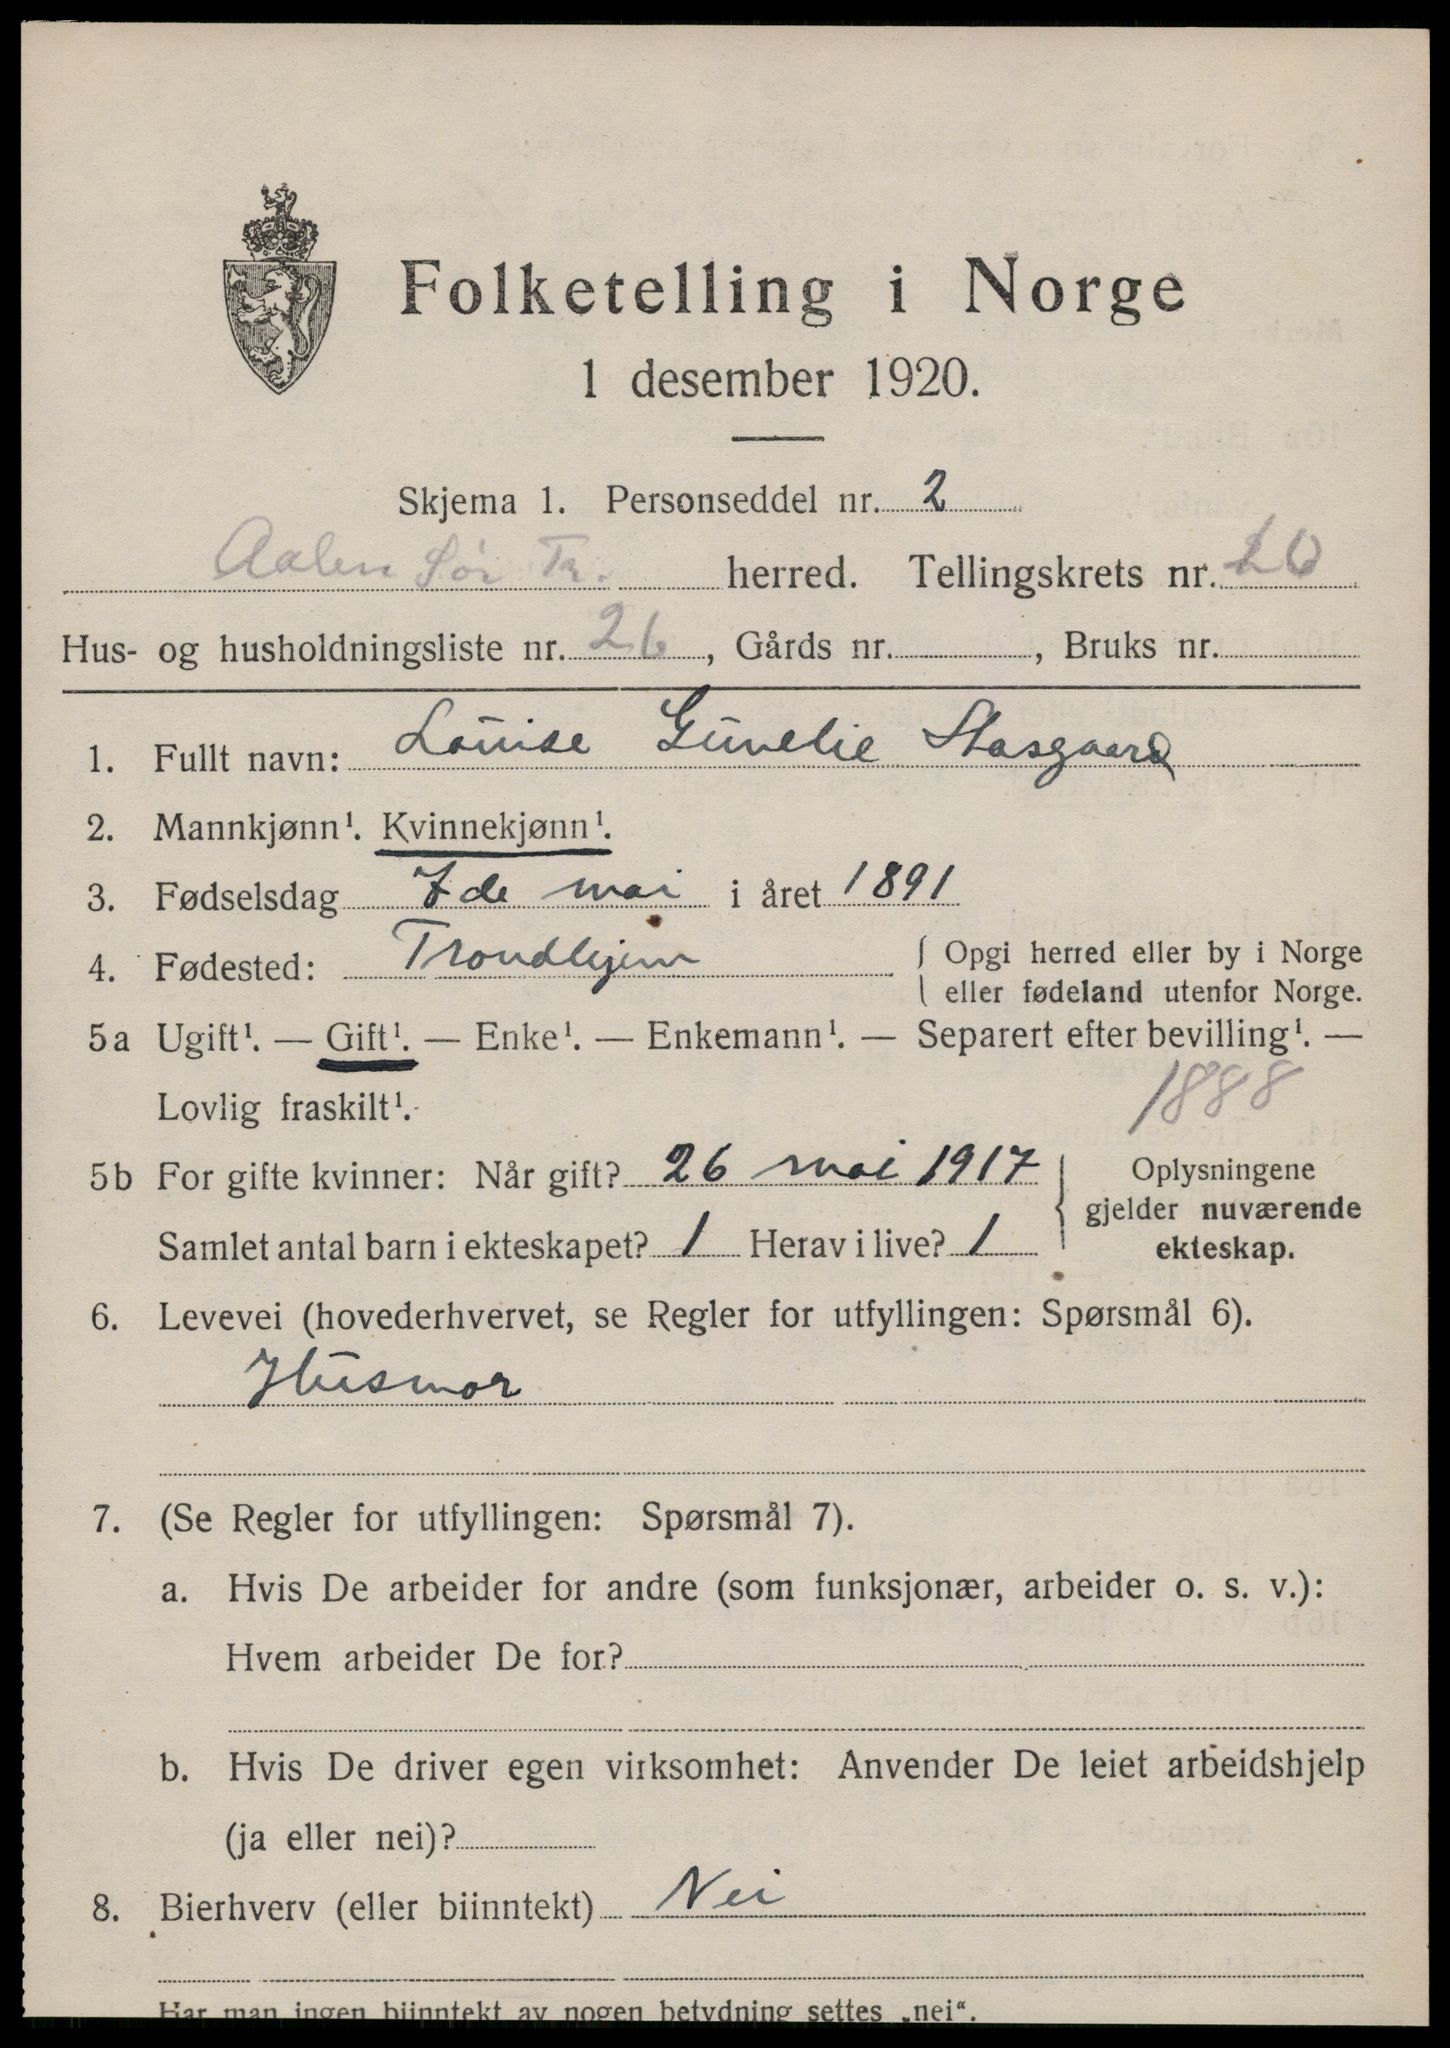 Folketelling i Norge
1 desember 1920.
Skjema 1. Personseddel nr. 2
Aalen Sør Tr. herred. Tellingskrets nr.
Hus- og husholdningsliste nr. 26, Gårds nr. , Bruks nr.
1. Fullt navn: Louise Gunelie Stasgaard
2. Mannkjønn¹. Kvinnekjønn¹.
3. Fødselsdag 7de mai i året 1891
4. Fødested: Trondhjem { Opgi herred eller by i Norge
eller fødeland utenfor Norge.
5a Ugift¹. — Gift¹. — Enke¹. — Enkemann¹. — Separert efter bevilling¹. —
Lovlig fraskilt¹. 1888
5b For gifte kvinner: Når gift? 26 mai 1917 { Oplysningene
gjelder nuværende
Samlet antal barn i ekteskapet? 1 Herav i live? 1 ekteskap.
6. Levevei (hovederhvervet, se Regler for utfyllingen: Spørsmål 6).
Husmor
7. (Se Regler for utfyllingen: Spørsmål 7).
a. Hvis De arbeider for andre (som funksjonær, arbeider o. s. v.):
Hvem arbeider De for?
b. Hvis De driver egen virksomhet: Anvender De leiet arbeidshjelp
(ja eller nei)?
8. Bierhverv (eller biinntekt) Nei
Har man ingen biinntekt av nogen betydning settes „nei“.